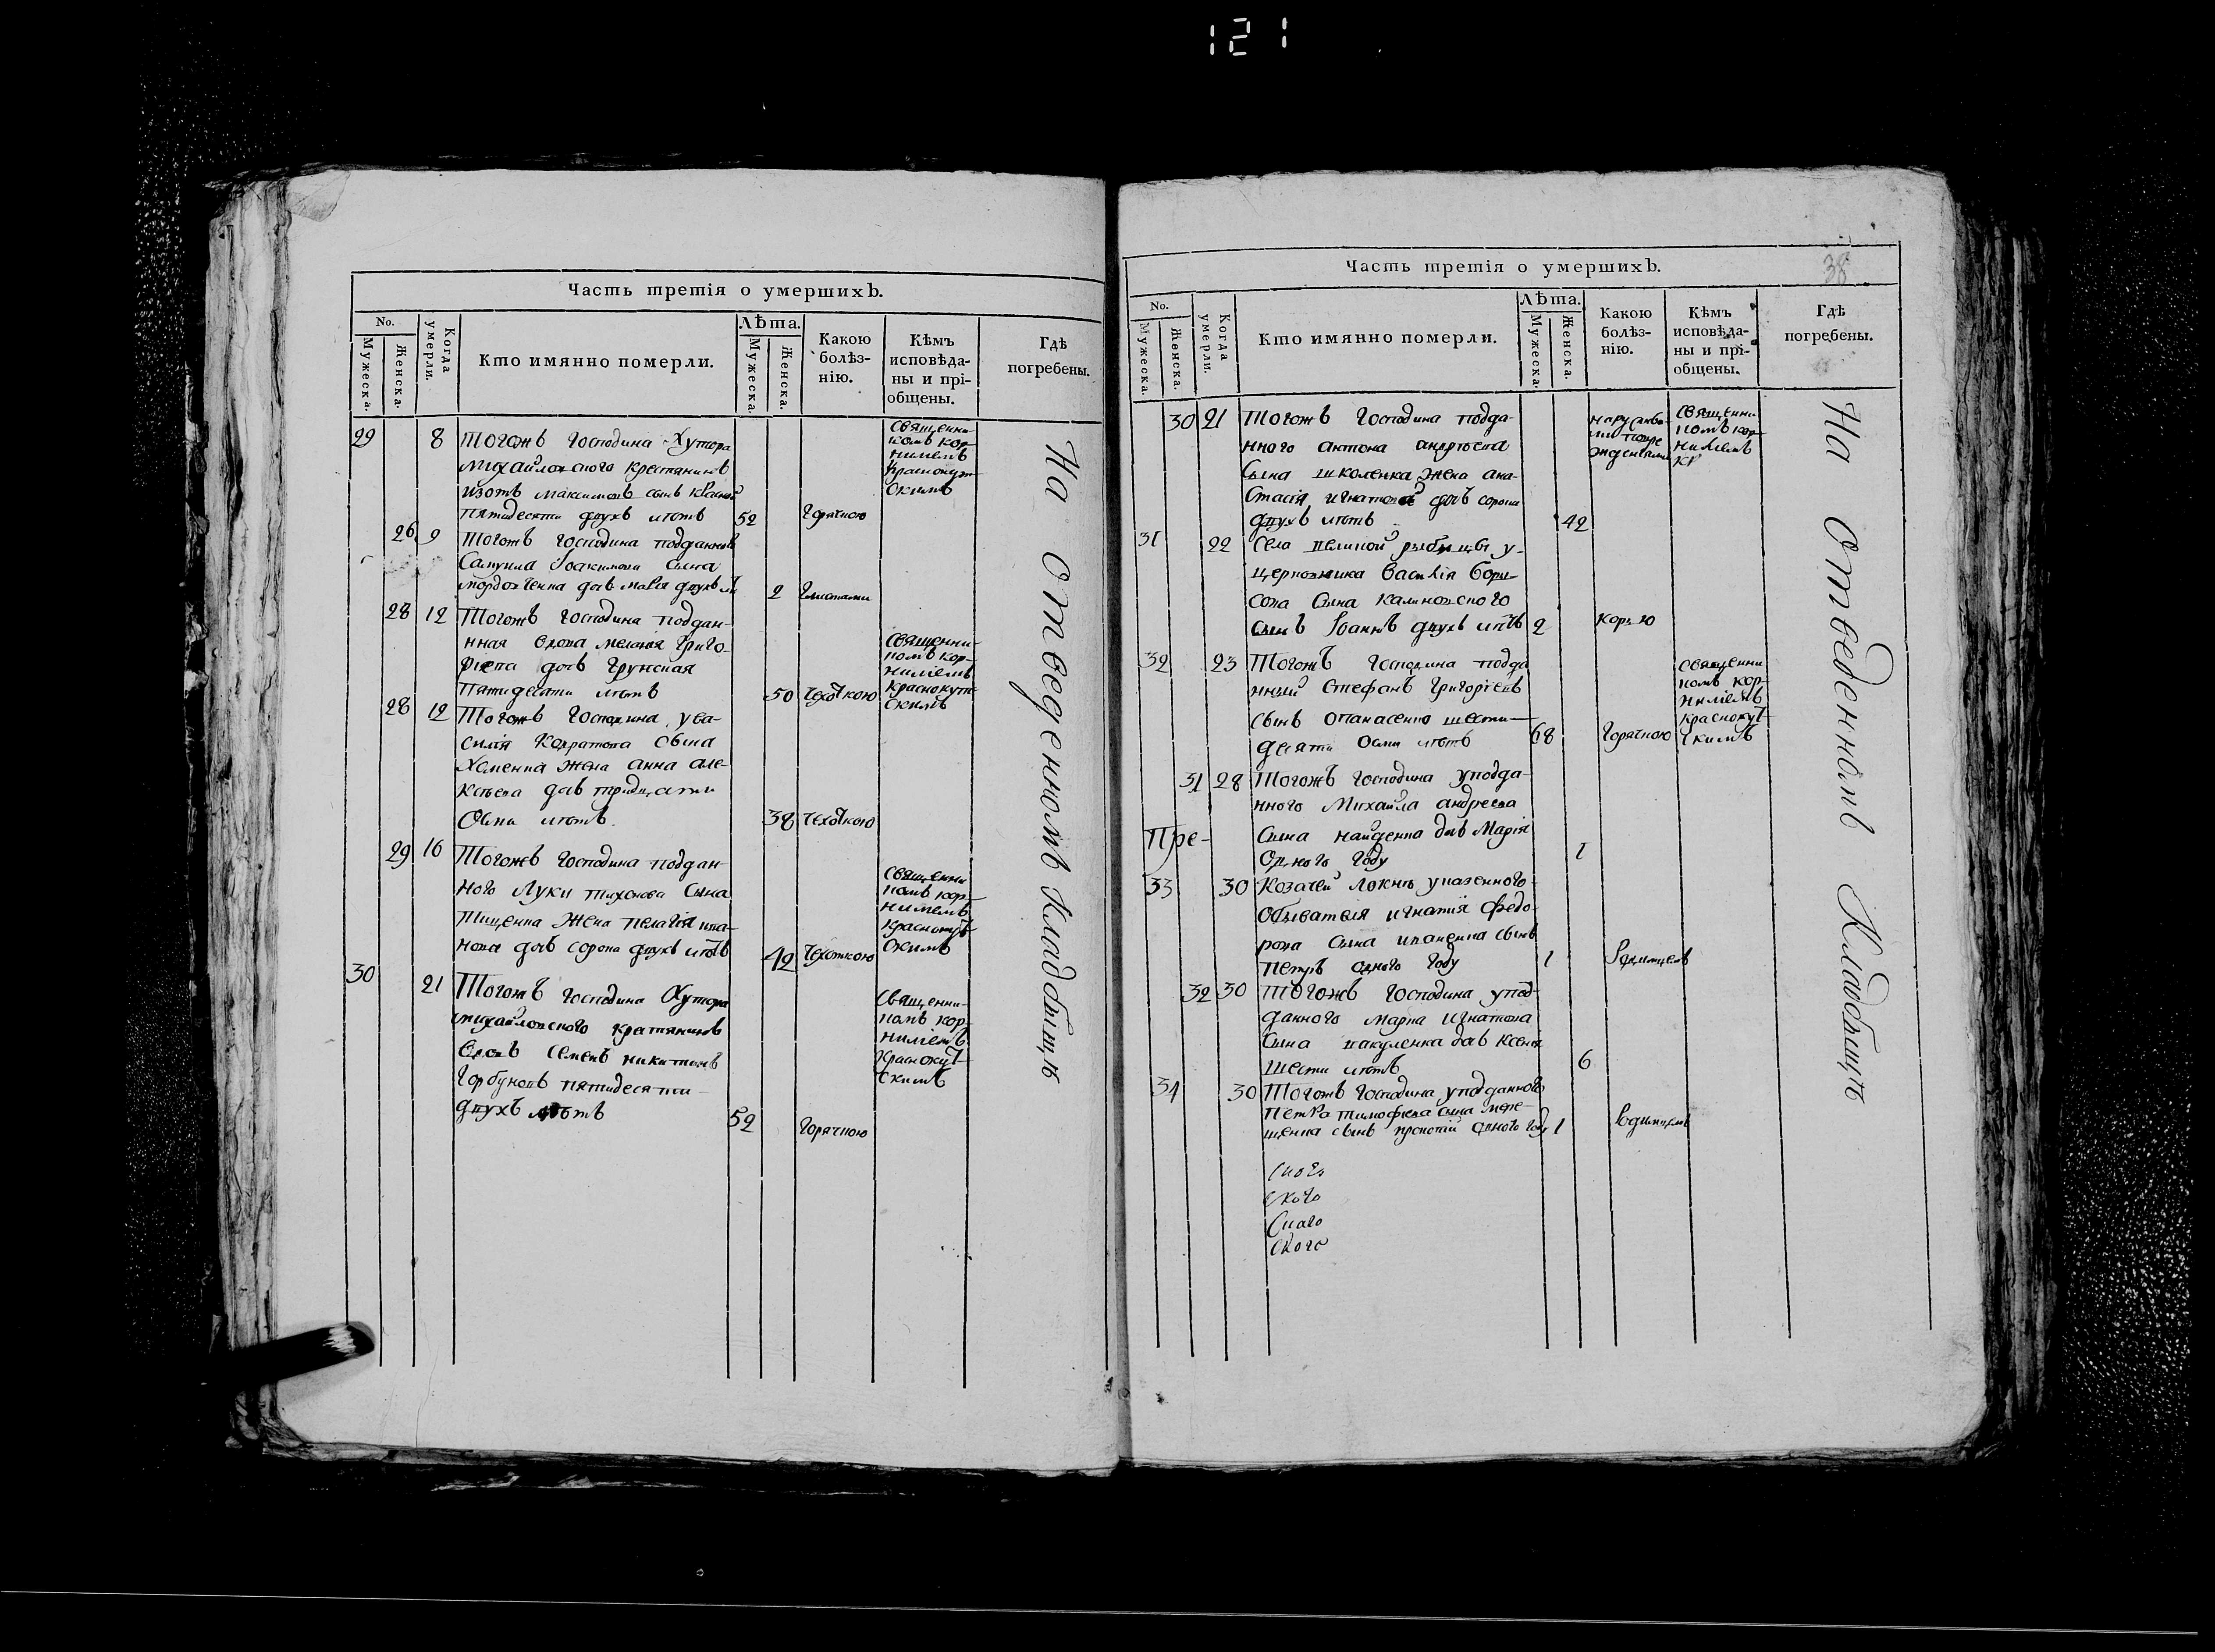 121
Часть третія о умершихъ.
No.
Мужеска.
Женска.
Когда умерли.
Кто имянно померли.
Лѣта.
Мужеска.
Женска.
Какою болѣз-
нію.
Кѣмъ
исповѣда-
ны и прі-
общены.
Гдѣ
погребены.
29 8 Тогожъ Господина Хутора
Михайловского крестянинъ
изотъ максимовъ сынъ
пятидесяти двухъ лѣтъ 52 Горячкою
Священни-
комъ кор-
ниліемъ
Краснокут-
скимъ
26 9 Тогожъ Господина подданного
Самуила Іоакимова Сына
дочь двухъ 2 Глистами
28 12 Тогожъ Господина поддан-
нная вдова мелания Григо-
ріева дочь Грунская
пятидесяти лѣтъ 50 Чехоткою
Священни-
комъ кор-
ниліемъ
Краснокут-
скимъ
28 12 Тогожъ Господина у ва-
силія Кондратова Сына
Хоменка Жена анна але-
ксѣева дочь тридцати
Осми лѣтъ. 38 чехоткою
29 16 Тогожъ Господина поддан-
ного Луки тихонова Сына
Тищенка Жена пелагія ива-
нова дочь сорока двухъ лѣтъ 42 Чехоткою
Священни
комъ кор-
ниліемъ
Краснокут-
скимъ
30 21 Тогожъ Господина Хутора
михайловского крестянинъ
вдовъ Семенъ никитинъ
Горбуновъ пятидесяти
двухъ лѣтъ 52 Горячкою
Священни-
комъ кор-
ниліемъ
Краснокут-
скимъ
На отведенномъ Кладбищѣ
Часть третія о умершихъ.
38
No.
Мужеска.
Женска.
Когда умерли.
Кто имянно померли.
Лѣта.
Мужеска.
Женска.
Какою
болѣз-
нію.
Кѣмъ
исповѣда-
ны и прі-
общены.
Гдѣ
погребены.
30 21 Тогожъ Господина подда-
нного антона андрѣева
Сына школенка Жена ана-
стасія игнатова дочь сорока
двухъ лѣтъ 42
Священни
комъ кор-
ниліемъ
Кр
31 22 Села великой рыбицы у
церковника Василія бори-
сова Сына Калиновского
сынъ Іоаннъ двухъ лѣтъ 2 Корью
32 23 Тогожъ Господина подда
нный Стефанъ Григоріевъ
сынъ опанасенко шести-
десяти осми лѣтъ 68 Горячкою
Священни
комъ кор-
ниліемъ
краснокут-
скимъ
31 28 Тогожъ Господина уподда-
нного Михайла андреева
Сына найденка дочь Марія
Одного Году 1
Пре-
33 30 Козачей локни указенного
Обывателя игнатія федо-
рова Сына иваненка сынъ
петръ одного Году 1 Родимцемъ
32 30 Тогожъ Господина упод-
данного марка игнатова
Сына вакуленка дочь Ксенія
шести лѣтъ 6
34 30 Тогожъ Господина уподданного
петра тимофеева сына
сынъ прокопій одного Году 1 Родимцемъ
ского
ского
На отведенномъ Кладбищѣ